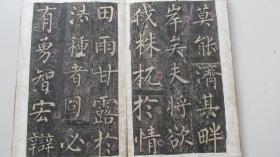 莫能濟其畔
岸矣夫將欲
伐株杌於情
田雨甘露於
法種者固必
有勇智宏辯